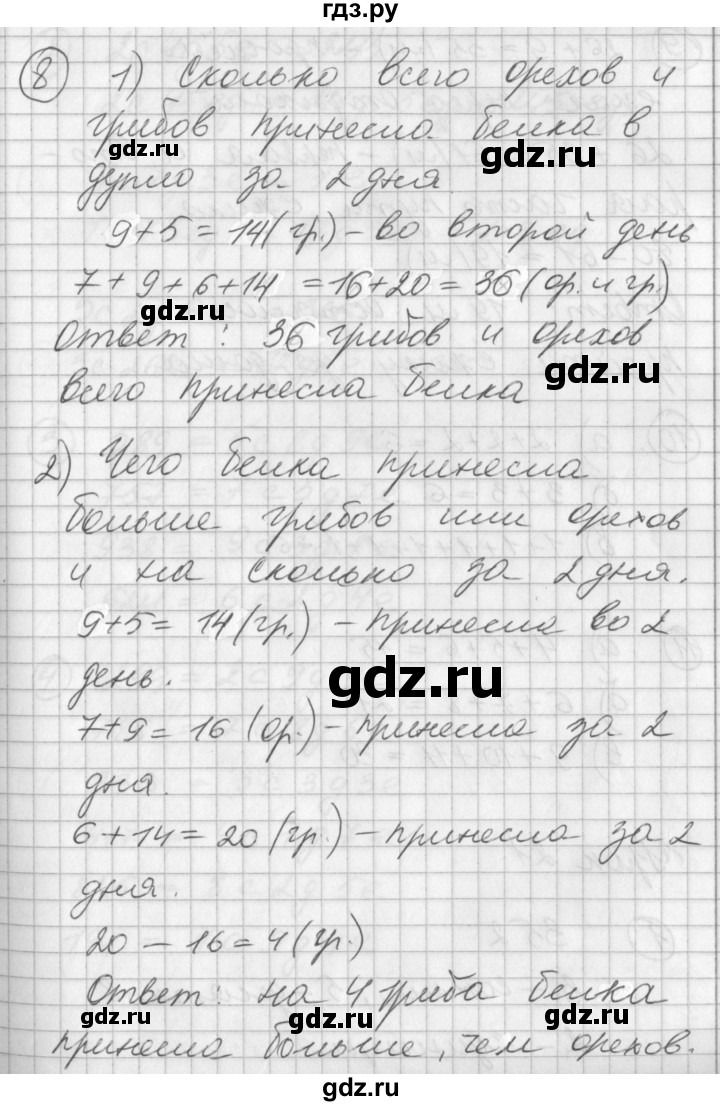 гдз.ру
8 1) Сколько всего орехов и
грибов принесла белка в
gdz.ru gdz.ru
дупло за 2 дня
9+5=14(гр.) – во второй день
7+9+6+14 =16+20=36(ор. и гр.)
gdz.ru
Ответ: 36 грибов и орехов
gdz.ru
всего принесла белка
2) Чего белка принесла
больше грибов или орехов
и на сколько за 2 дня.
9+5=14(гр.) – принесла во 2
день.
gdz.ru
7+9=16(ор.) – принесла за 2
дня.
6+14=20(гр.) – принесла за 2
дня.
20–16=4(гр.)
Ответ: на 4 гриба белка
gdz.ru gdz.ru
принесла больше, чем орехов.
gdz.ru